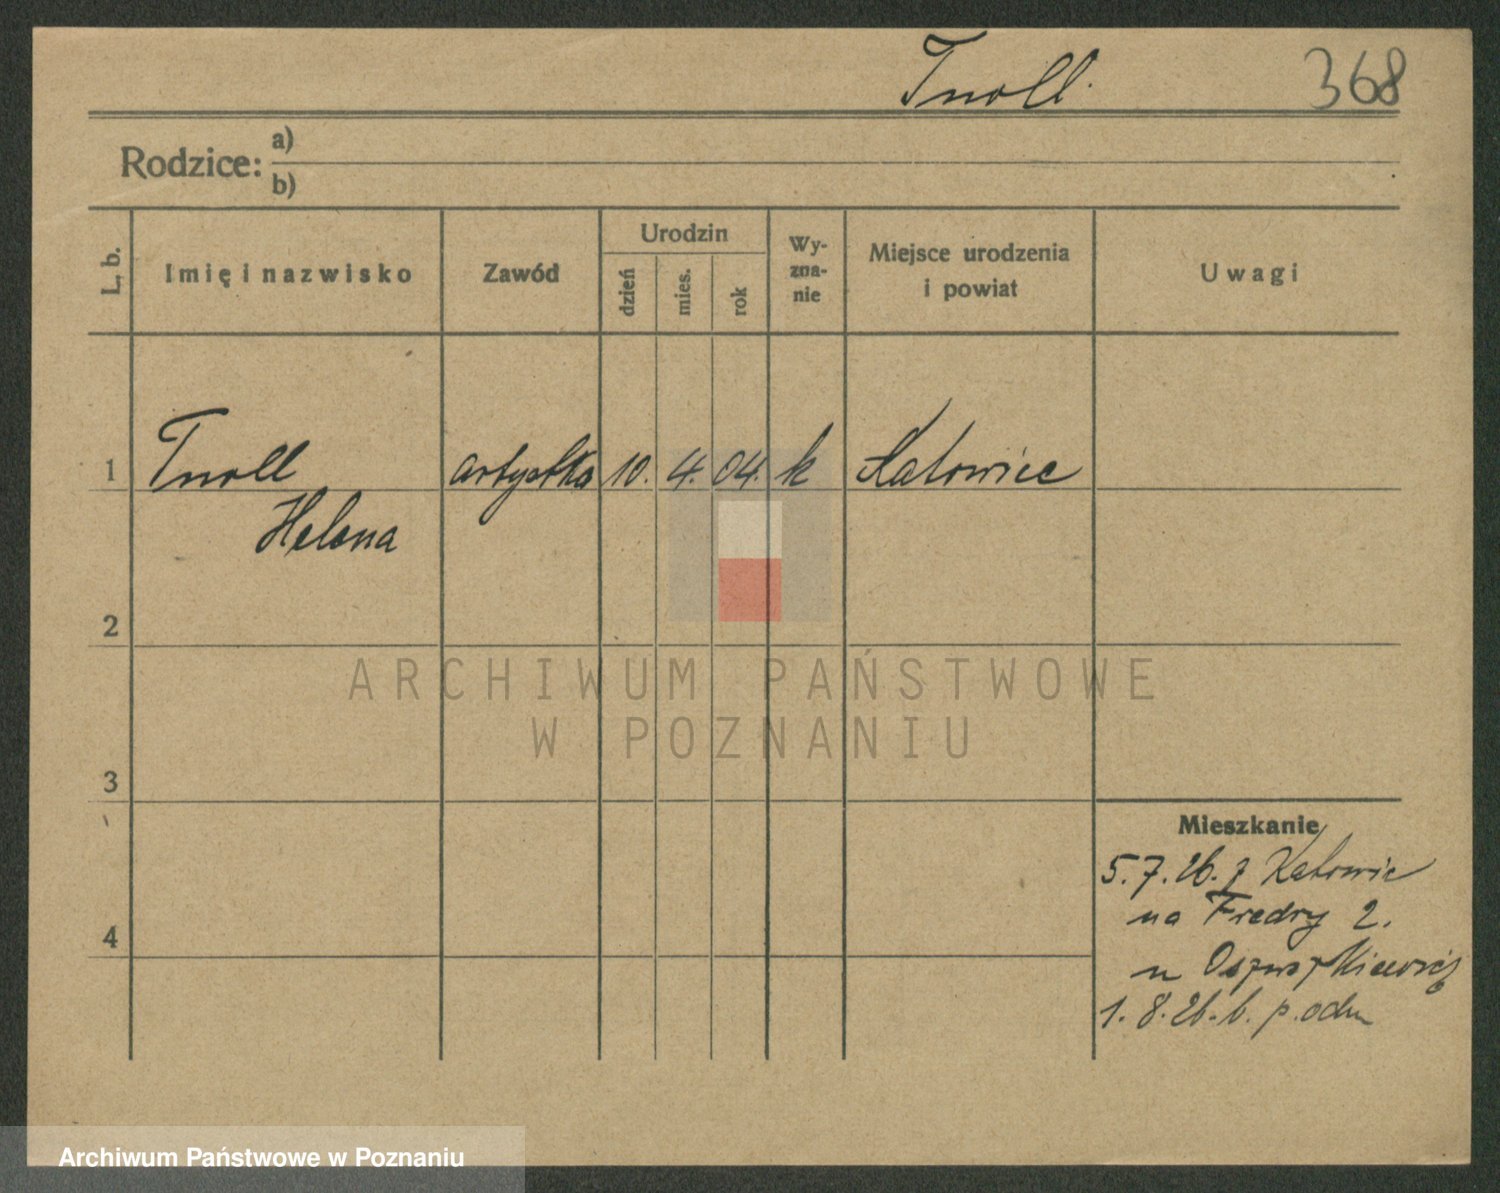 Tnoll.
368
Rodzice:
a)
b)
L. b.
Imię i nazwisko
Zawód
Urodzin
dzień
mies.
rok
Wy-
zna-
nie
Miejsce urodzenia
i powiat
Uwagi
1
Tnoll
artystka
10.
4.
04.
k
Katowice
Helena
2
3
4
Mieszkanie
5.7.26. z Katowic
na Fredry 2.
u
1.8.26. b. p. odm
ARCHIWUM PAŃSTWOWE
W POZNANIU
Archiwum Państwowe w Poznaniu